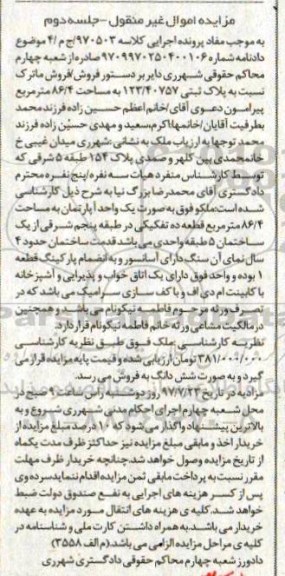 مزایده اموال غیر منقول -جلسه دوم
به موجب مفاد پرونده اجرایی کلاسه ۹۷۰۵۰۳/ج م /۴ موضوع
دادنامه شماره ۹۷۰۹۹۷۰۲۵۰۴۰۰۱۰۶ صادره از شعبه چهارم
محاکم حقوقی شهرری دایر بر دستور فروش/فروش ماترک
نسبت به پلاک ثبتی ۱۲۳/۴۰۷۵۷ به مساحت ۸۶/۴ مترمربع
پیرامون دعوی آقای/خانم اعظم حسین زاده فرزند محمد
بطرفیت آقایان/خانمها:اکرم،سعید و مهدی حسین زاده فرزند
محمد توجها به ارزیاب ملک به نشانی :شهرری میدان غیبی خ
خانمحمدی بین کلهر و صمدی پلاک ۱۵۴ طبقه ۵ شرقی که
توسط کارشناس منفرد هیات سه نفره/پنج نفره محترم
دادگستری آقای محمدرضا بزرگ نیا به شرح ذیل کارشناسی
شده است:ملکو فوق به صورت یک واحد آپارتمان به مساحت
۸۶/۴ مترمربع قطعه ده تفکیکی در طبقه پنجم شرقی از یک
ساختمان ۵ طبقه واحدی می باشد قدمت ساختمان حدود ۴
سال نمای آن سنگ دارای آسانسور و به انضمام پارکینگ قطعه
۱ بوده و واحد فوق دارای یک اتاق خواب و پذیرایی و آشپزخانه
با کابینت ام دی اف و با کف سازی سرامیک می باشد که در
تصرف ورثه مرحوم فاطمه نیکونام می باشد و همچنین
در مالکیت مشاعی ورثه خانم فاطمه نیکونام قرار دارد.
نظریه کارشناسی :ملک فوق طبق نظریه کارشناسی
۳۸۱/۰۰۰/۰۰۰ تومان ارزیابی شده و قیمت پایه مزایده قرار می
گیرد و به صورت شش دانگ به فروش می رسد.
مزایده در تاریخ ۹۷/۷/۲۳ روز دوشنبه راس ساعت ۹ صبح در
محل شعبه چهارم اجرای احکام مدنی شهرری شروع و به
بالاترین پیشنهاد واگذار می شود که ۱۰ درصد مبلغ مزایده از
خریدار اخذ و مابقی مبلغ مزایده نیز حداکثر ظرف مدت یکماه
از تاریخ مزایده وصول خواهد شد.چنانچه خریدار ظرف مهلت
مقرر نسبت به پرداخت مابقی ثمن مزایده اقدام ننماید سپرده وی
پس از کسر هزینه های اجرایی به نفع صندوق دولت ضبط
خواهد شد. کلیه ی هزینه های انتقال مورد مزایده به عهده
خریدار می باشد.به همراه داشتن کارت ملی و شناسنامه در
کلیه ی مراحل مزایده الزامی می باشد.(م الف ۳۵۵۸)
دادورز شعبه چهارم محاکم حقوقی دادگستری شهرری